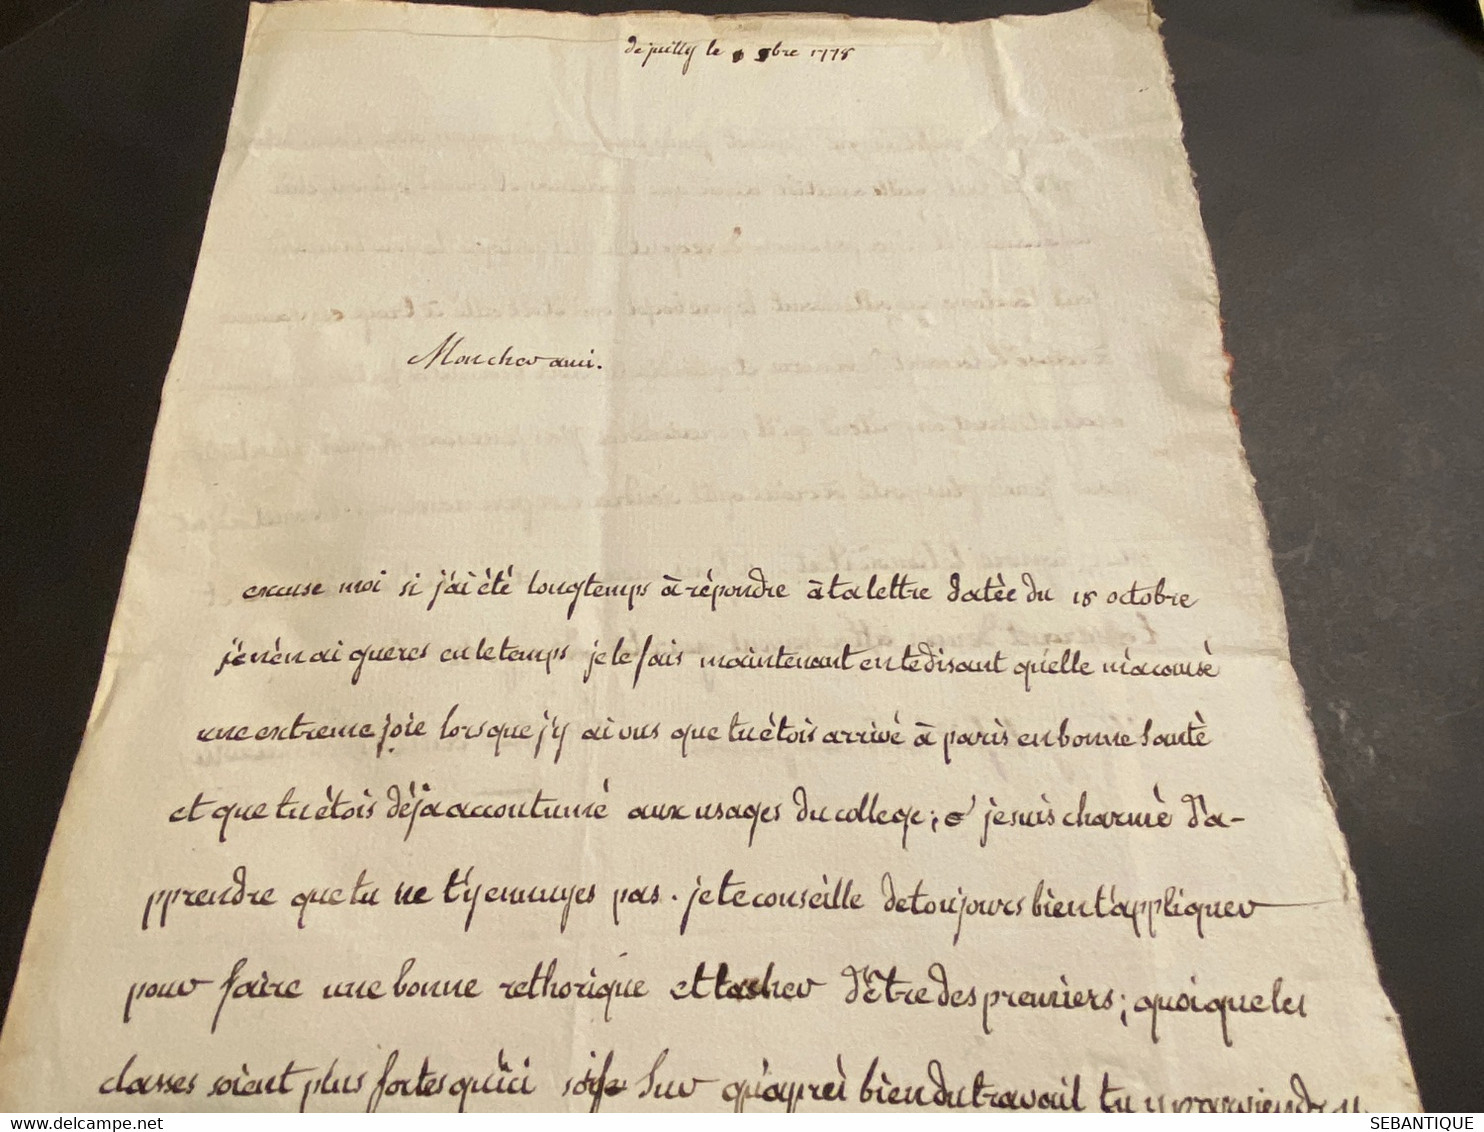 de juilly le 9bre 1778
Mon cher ami.
excuse moi si j'ai été longtemps à répondre à ta lettre datée du 18 octobre
je n'en ai gueres eu le temps je le fais maintenant en te disant qu'elle m'a causé
une extreme joie lorsque j'y ai vus que tu étois arrivé à paris en bonne santé
et que tu étois déja accoutumé aux usages du college; je suis charmé d'a-
pprendre que tu ne t'y ennuyes pas. je te conseille de toujours bien t'appliquer
pour faire une bonne rethorique et tacher d'être des premiers; quoique les
classes soient plus fortes qu'ici sois sur qu'apres bien du travail tu y parviendras
SEBANTIQUE